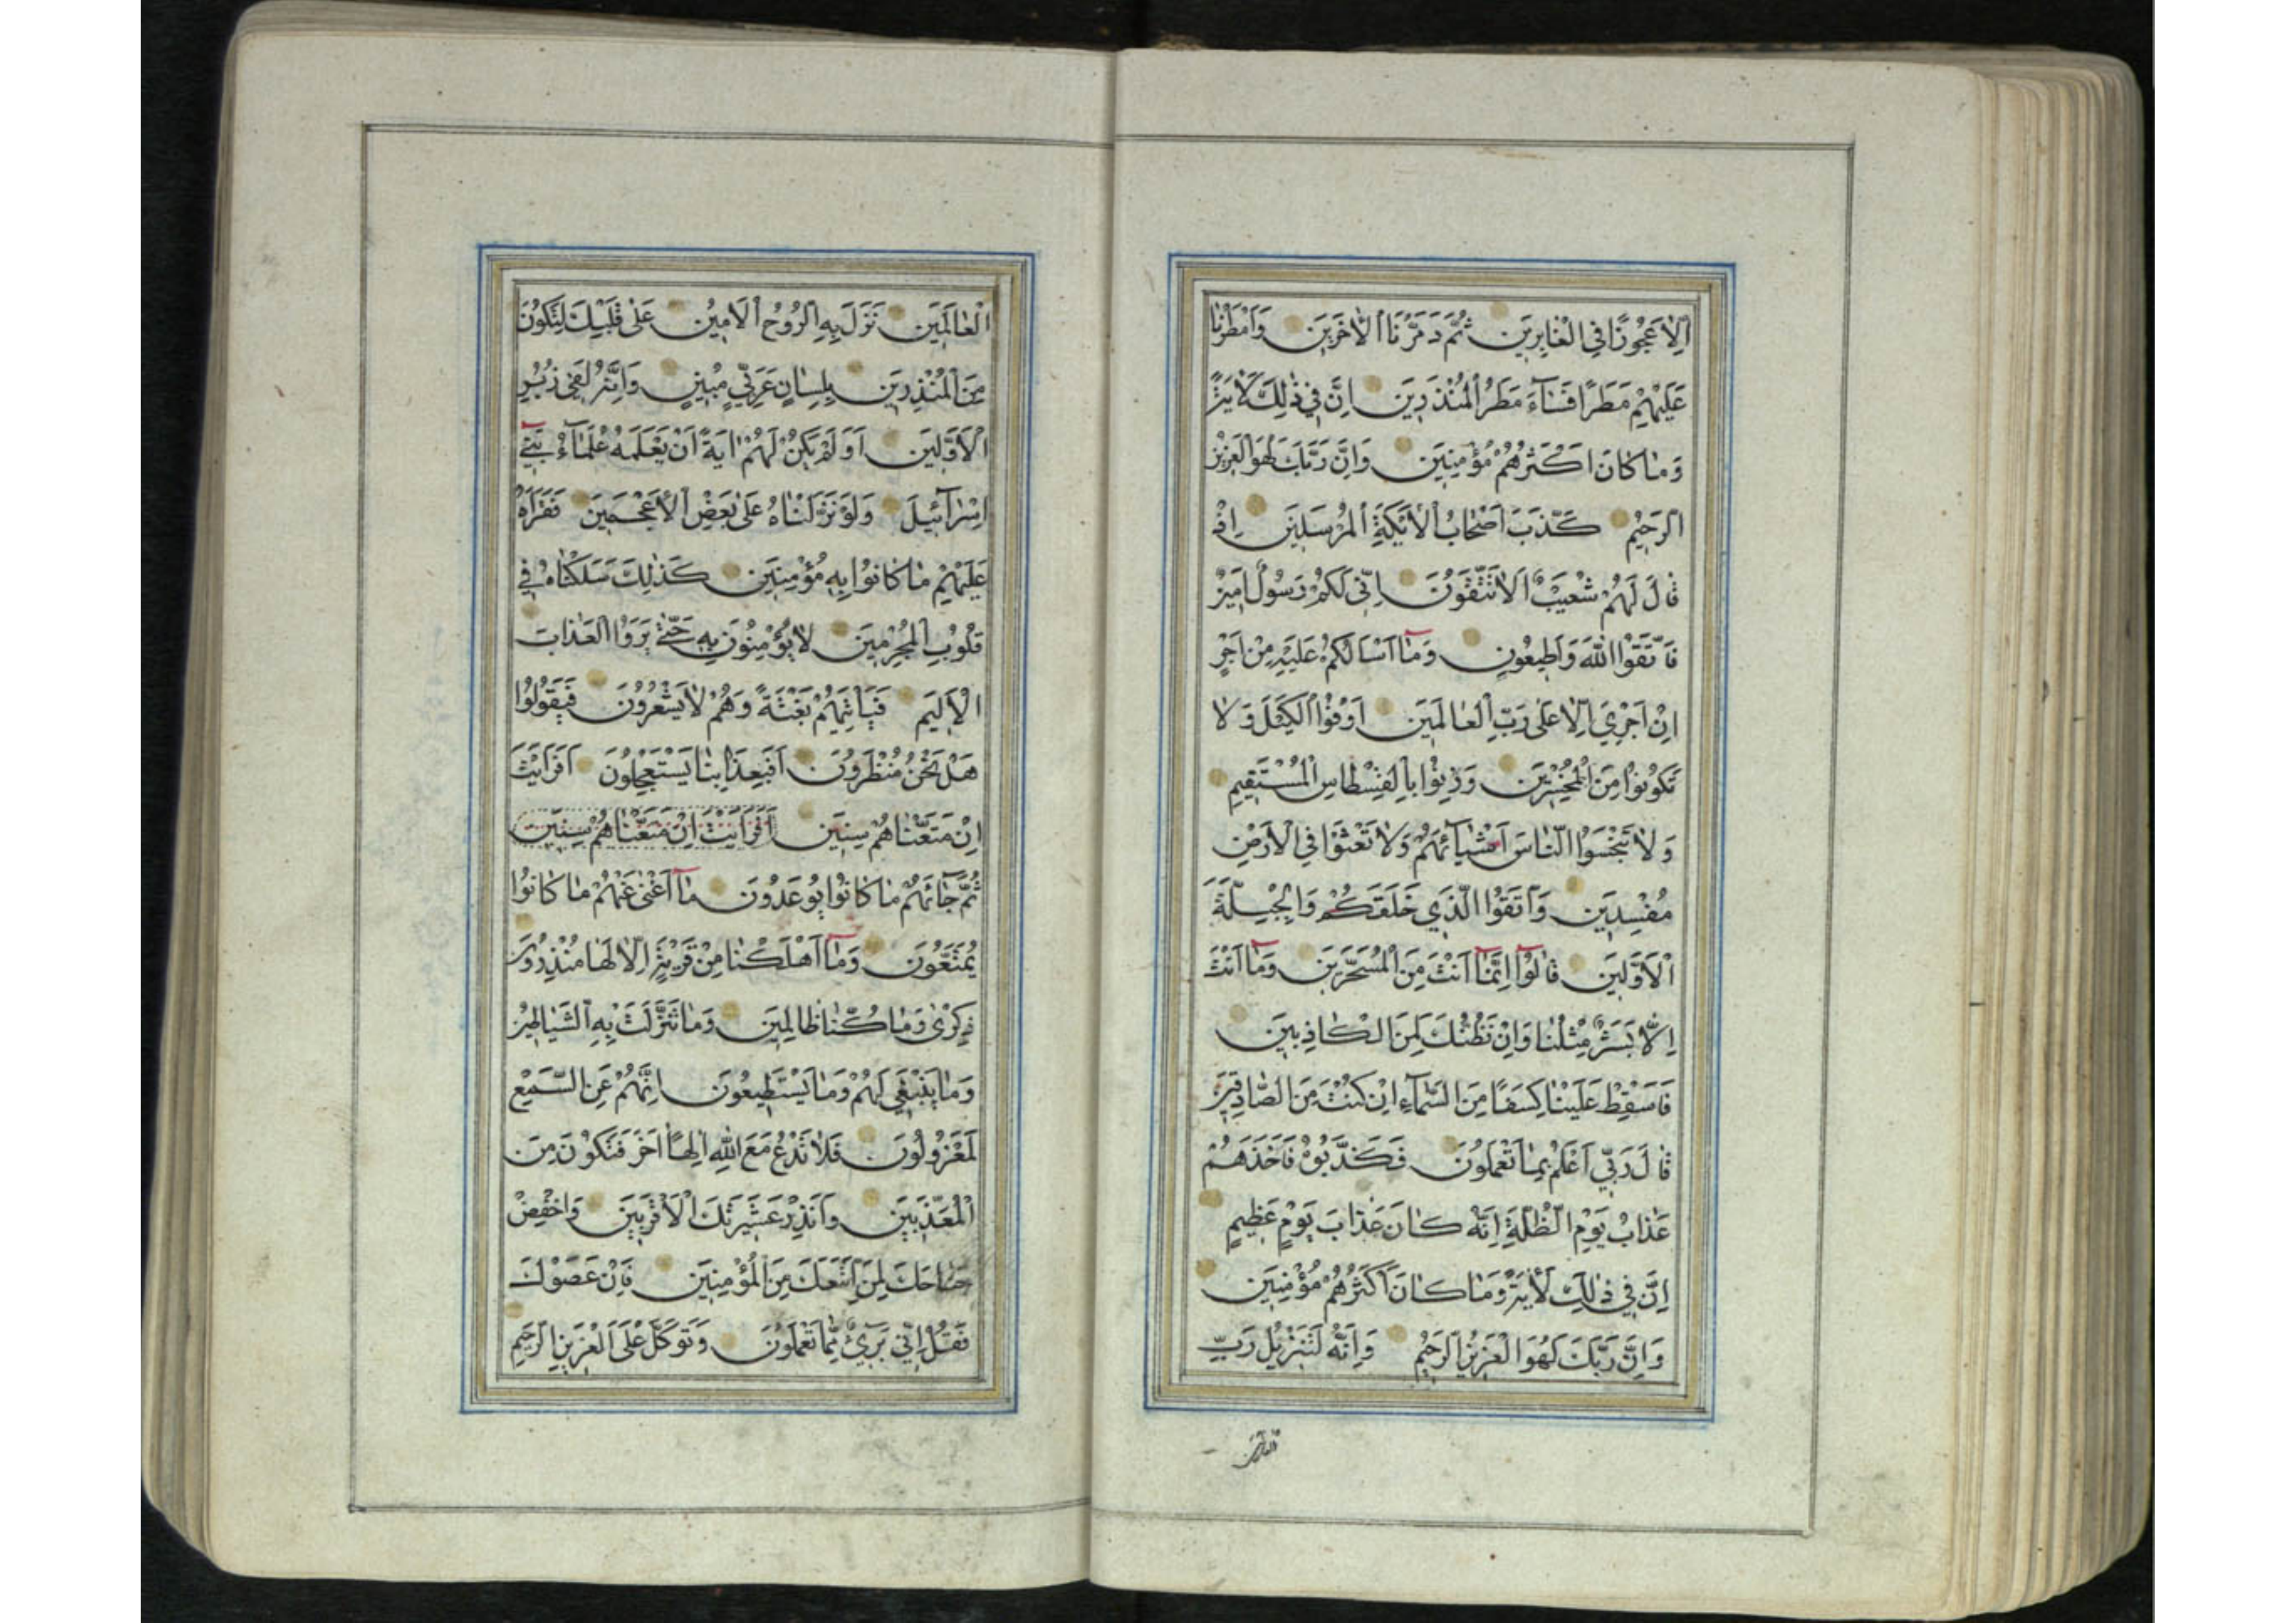 اِلَّا عَجُوزًا فِي الْغَابِرِينَ ثُمَّ دَمَّرْنَا الْاٰخَرِينَ وَاَمْطَرْنَا
عَلَيْهِمْ مَطَرًا فَسَاۤءَ مَطَرُ الْمُنْذَرِينَ اِنَّ فِي ذٰلِكَ لَاٰيَةً
وَمَا كَانَ اَكْثَرُهُمْ مُؤْمِنِينَ وَاِنَّ رَبَّكَ لَهُوَ الْعَزِيزُ
الرَّحِيمُ كَذَّبَ اَصْحَابُ الْاَيْكَةِ الْمُرْسَلِينَ اِذْ
قَالَ لَهُمْ شُعَيْبٌ اَلَا تَتَّقُونَ اِنِّي لَكُمْ رَسُولٌ اَمِينٌ
فَاتَّقُوا اللّٰهَ وَاَطِيعُونِ وَمَاۤ اَسْاَلُكُمْ عَلَيْهِ مِنْ اَجْرٍ
اِنْ اَجْرِيَ اِلَّا عَلٰى رَبِّ الْعَالَمِينَ اَوْفُوا الْكَيْلَ وَلَا
تَكُونُوا مِنَ الْمُخْسِرِينَ وَزِنُوا بِالْقِسْطَاسِ الْمُسْتَقِيمِ
وَلَا تَبْخَسُوا النَّاسَ اَشْيَاۤئَهُمْ وَلَا تَعْثَوْا فِي الْاَرْضِ
مُفْسِدِينَ وَاتَّقُوا الَّذِي خَلَقَكُمْ وَالْجِبِلَّةَ
الْاَوَّلِينَ قَالُوۤا اِنَّمَاۤ اَنْتَ مِنَ الْمُسَحَّرِينَ وَمَاۤ اَنْتَ
اِلَّا بَشَرٌ مِثْلُنَا وَاِنْ نَظُنُّكَ لَمِنَ الْكَاذِبِينَ
فَاَسْقِطْ عَلَيْنَا كِسَفًا مِنَ السَّمَاۤءِ اِنْ كُنْتَ مِنَ الصَّادِقِينَ
قَالَ رَبِّي اَعْلَمُ بِمَا تَعْمَلُونَ فَكَذَّبُوهُ فَاَخَذَهُمْ
عَذَابُ يَوْمِ الظُّلَّةِ اِنَّهُ كَانَ عَذَابَ يَوْمٍ عَظِيمٍ
اِنَّ فِي ذٰلِكَ لَاٰيَةً وَمَا كَانَ اَكْثَرُهُمْ مُؤْمِنِينَ
وَاِنَّ رَبَّكَ لَهُوَ الْعَزِيزُ الرَّحِيمُ وَاِنَّهُ لَتَنْزِيلُ رَبِّ
العالمين
الْعَالَمِينَ نَزَلَ بِهِ الرُّوحُ الْاَمِينُ عَلٰى قَلْبِكَ لِتَكُونَ
مِنَ الْمُنْذِرِينَ بِلِسَانٍ عَرَبِيٍّ مُبِينٍ وَاِنَّهُ لَفِي زُبُرِ
الْاَوَّلِينَ اَوَلَمْ يَكُنْ لَهُمْ اٰيَةً اَنْ يَعْلَمَهُ عُلَمَاۤءُ بَنِيۤ
اِسْرَاۤئِيلَ وَلَوْ نَزَّلْنَاهُ عَلٰى بَعْضِ الْاَعْجَمِينَ فَقَرَاَهُ
عَلَيْهِمْ مَا كَانُوا بِهِ مُؤْمِنِينَ كَذٰلِكَ سَلَكْنَاهُ فِي
قُلُوبِ الْمُجْرِمِينَ لَا يُؤْمِنُونَ بِهِ حَتّٰى يَرَوُا الْعَذَابَ
الْاَلِيمَ فَيَاْتِيَهُمْ بَغْتَةً وَهُمْ لَا يَشْعُرُونَ فَيَقُولُوا
هَلْ نَحْنُ مُنْظَرُونَ اَفَبِعَذَابِنَا يَسْتَعْجِلُونَ اَفَرَاَيْتَ
اِنْ مَتَّعْنَاهُمْ سِنِينَ اَفَرَاَيْتَ اِنْ مَتَّعْنَاهُمْ سِنِينَ
ثُمَّ جَاۤئَهُمْ مَا كَانُوا يُوعَدُونَ مَاۤ اَغْنٰى عَنْهُمْ مَا كَانُوا
يُمَتَّعُونَ وَمَاۤ اَهْلَكْنَا مِنْ قَرْيَةٍ اِلَّا لَهَا مُنْذِرُونَ
ذِكْرٰى وَمَا كُنَّا ظَالِمِينَ وَمَا تَنَزَّلَتْ بِهِ الشَّيَاطِينُ
وَمَا يَنْبَغِي لَهُمْ وَمَا يَسْتَطِيعُونَ اِنَّهُمْ عَنِ السَّمْعِ
لَمَعْزُولُونَ فَلَا تَدْعُ مَعَ اللّٰهِ اِلٰهًا اٰخَرَ فَتَكُونَ مِنَ
الْمُعَذَّبِينَ وَاَنْذِرْ عَشِيرَتَكَ الْاَقْرَبِينَ وَاخْفِضْ
جَنَاحَكَ لِمَنِ اتَّبَعَكَ مِنَ الْمُؤْمِنِينَ فَاِنْ عَصَوْكَ
فَقُلْ اِنِّي بَرِيۤءٌ مِمَّا تَعْمَلُونَ وَتَوَكَّلْ عَلَى الْعَزِيزِ الرَّحِيمِ